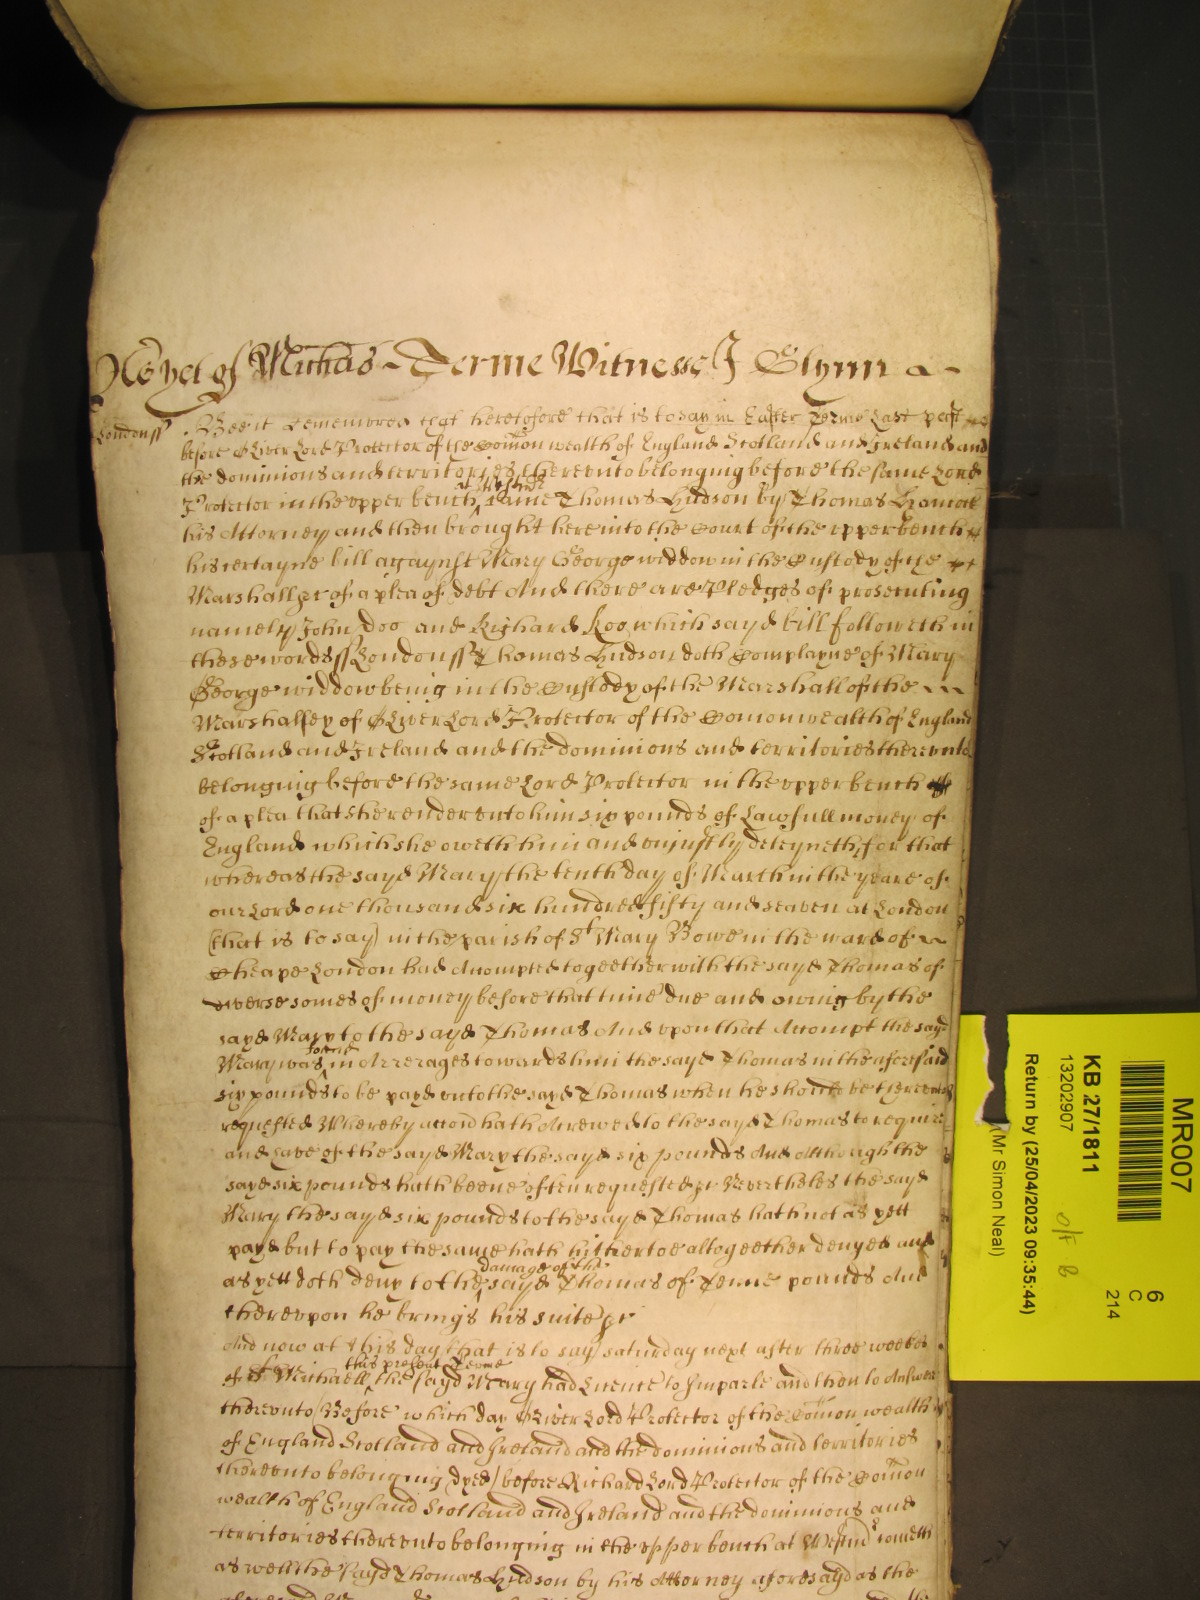 As yet of Michas Terme Witnesse J Glynn
London ss
Bee it Remembred that heretofore that is to say in Easter Terme Last past
before Oliver Lord Protector of the Comon wealth of England Scotland and Ireland and
the dominions and territories therevnto belonging before the same Lord
at Westmr
Protector in the vpper bench came Thomas Hudson by Thomas
his Attorney and then brought here into the Court of the vpper bench
his certayne bill agaynst Mary George widdow in the Custody of the
Marshall &c of a plea of debt And there are Pledges of prosecuting
namely John Doo and Richard Roo which sayd bill followeth in
these words ss London ss Thomas Hudson doth Complayne of Mary
George widdow being in the Custody of the Marshall of the
Marshalsey of Oliver Lord Protector of the Comonwealth of England
Scotland and Ireland and the dominions and territories therevnto
belonging before the same Lord Protector in the vpper bench
of a plea that she render vnto him six pounds of Lawfull money of
England which she oweth him and vniustly deteyneth for that
whereas the sayd Mary the tenth day of March in the yeare of
our Lord one thousand six hundred fifty and seaven at London
(that is to say) in the parish of St Mary Bowe in the ward of
Cheape London had Accompted togeether with the sayd Thomas of
diverse somes of money before that time due and owing by the
sayd Mary to the sayd Thomas And vpon that Accompt the sayd
found
Mary was in Arrerages towards him the sayd Thomas in the aforesaid
six pounds to be payd vnto the sayd Thomas when he should be thereunto
requested Whereby accord hath Acrewed to the sayd Thomas to require
and have of the sayd Mary the sayd six pounds And Although the
sayd six pounds hath beene often requested &c Nevertheles the sayd
Mary the sayd six pounds to the sayd Thomas hath not as yett
payd but to pay the same hath hithertoe altogeether denyed and
damage of the
as yett doth deny to the sayd Thomas of Tenne pounds And
therevpon he brings his suite &c
And now at this day that is to say saturday next after three weekes
this present Terme
of St Michaell the sayd Mary had Licence to Imparle and then to Answer
therevnto (Before which day Oliver Lord Protector of the Comon wealth
of England Scotland and Ireland and the dominions and territories
therevnto belonging dyed) before Richard Lord Protector of the Comon
wealth of England Scotland and Ireland and the dominions and
territories therevnto belonging in the vpper bench at Westmr cometh
as well the sayd Thomas Hudson by his Attorney aforesayd as the
MR007
6
C
214
KB 27/1811
13202907
Return by (25/04/2023 09:35:44)
(Mr Simon Neal)